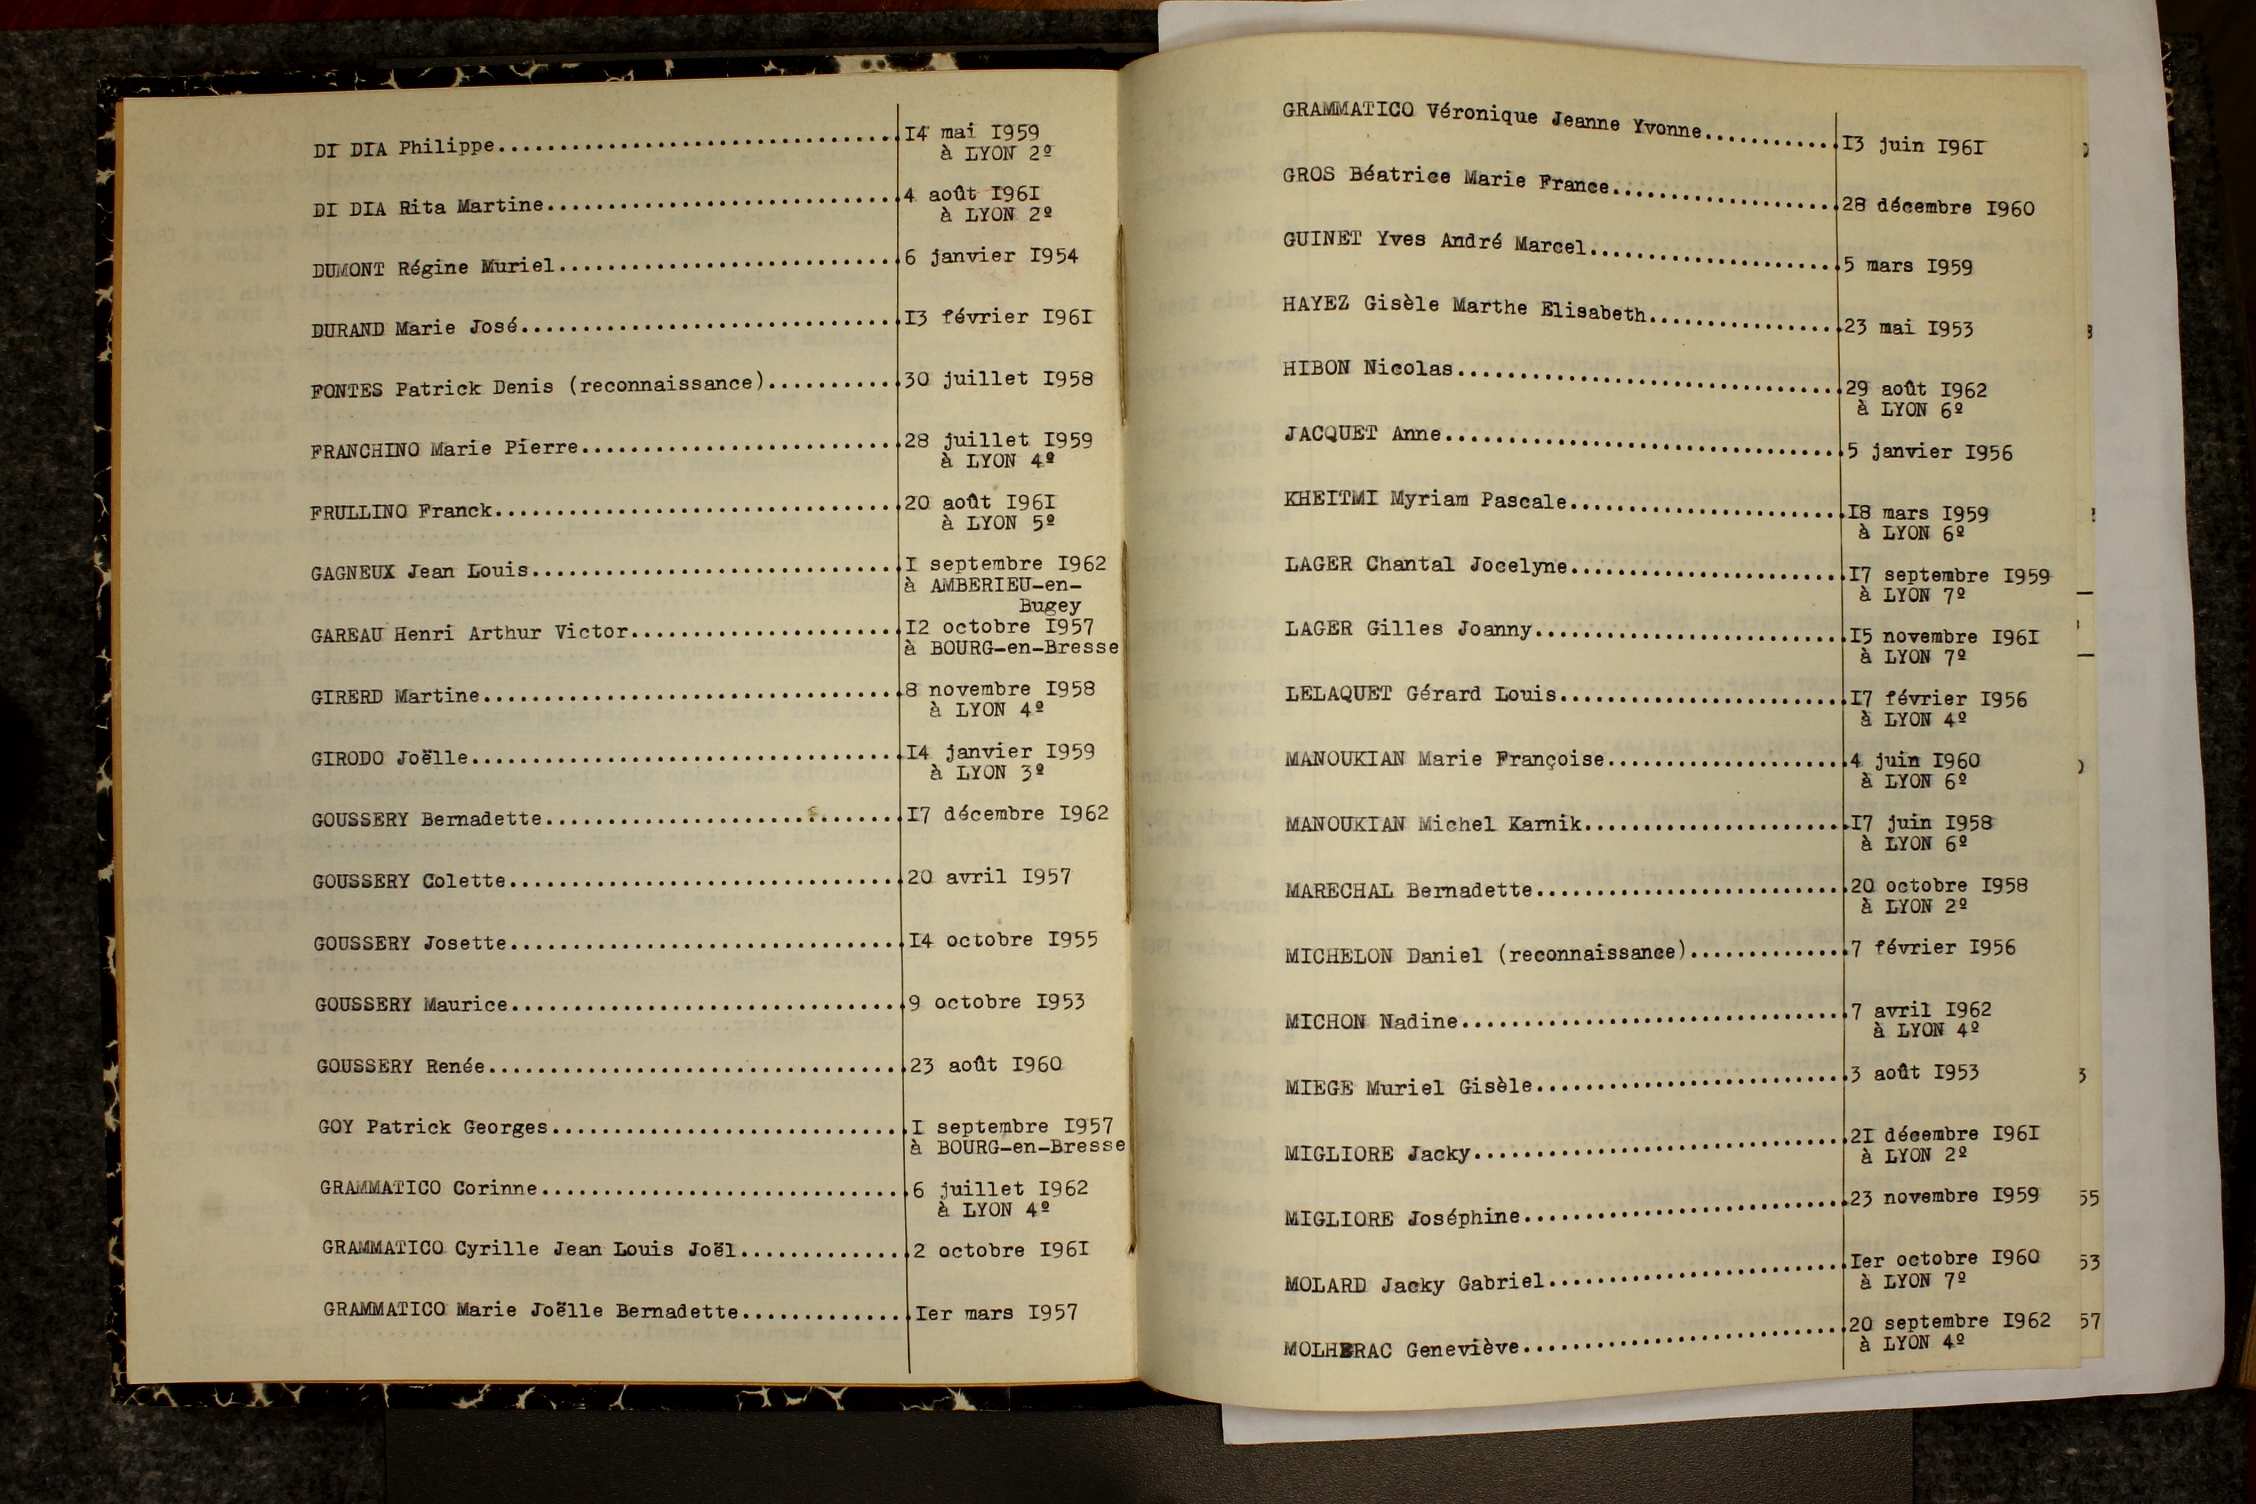 DI DIA Philippe.................................14 mai I959
à LYON 2º
DI DIA Rita Martine.............................4 août I96I
à LYON 2º
DUMONT Régine Muriel............................6 janvier I954
DURAND Marie José...............................I3 février I96I
FONTES Patrick Denis (reconnaissance)...........30 juillet I958
FRANCHINO Marie Pierre..........................28 juillet I959
à LYON 4º
FRULLINO Franck.................................20 août I96I
à LYON 5º
GAGNEUX Jean Louis..............................I septembre I962
à AMBERIEU-en-
Bugey
GAREAU Henri Arthur Victor......................I2 octobre I957
à BOURG-en-Bresse
GIRERD Martine..................................8 novembre I958
à LYON 4º
GIRODO Joëlle...................................I4 janvier I959
à LYON 3º
GOUSSERY Bernadette.............................I7 décembre I962
GOUSSERY Colette................................20 avril I957
GOUSSERY Josette................................I4 octobre I955
GOUSSERY Maurice................................9 octobre I953
GOUSSERY Renée..................................23 août I960
GOY Patrick Georges.............................I septembre I957
à BOURG-en-Bresse
GRAMMATICO Corinne..............................6 juillet I962
à LYON 4º
GRAMMATICO Cyrille Jean Louis Joël..............2 octobre I96I
GRAMMATICO Marie Joëlle Bernadette..............Ier mars I957
GRAMMATICO Véronique Jeanne Yvonne...........I3 juin I96I
GROS Béatrice Marie France...................28 décembre I960
GUINET Yves André Marcel.....................5 mars I959
HAYEZ Gisèle Marthe Elisabeth................23 mai I953
HIBON Nicolas................................29 août I962
à LYON 6º
JACQUET Anne.................................5 janvier I956
KHEITMI Myriam Pascale.......................I8 mars I959
à LYON 6º
LAGER Chantal Jocelyne.......................I7 septembre I959
à LYON 7º
LAGER Gilles Joanny..........................I5 novembre I96I
à LYON 7º
LELAQUET Gérard Louis........................I7 février I956
à LYON 4º
MANOUKIAN Marie Françoise....................4 juin I960
à LYON 6º
MANOUKIAN Michel Karnik......................I7 juin I958
à LYON 6º
MARECHAL Bernadette..........................20 octobre I958
à LYON 2º
MICHELON Daniel (reconnaissance).............7 février I956
MICHON Nadine................................7 avril I962
à LYON 4º
MIEGE Muriel Gisèle..........................3 août I953
MIGLIORE Jacky...............................2I décembre I96I
à LYON 2º
MIGLIORE Joséphine...........................23 novembre I959
MOLARD Jacky Gabriel.........................Ier octobre I960
à LYON 7º
MOLHERAC Geneviève...........................20 septembre I962
à LYON 4º
3
55
53
57